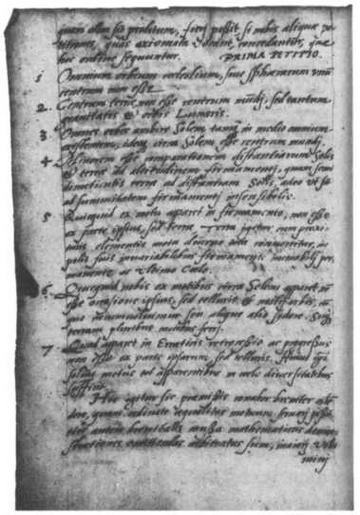 quam olim sit proditum, fieri possit, si nobis aliquæ pe-
titiones, quas axiomata vocant, concedantur, quæ
hoc ordine sequuntur. PRIMA PETITIO.
1 Omnium orbium cœlestium, sive sphærarum unum
centrum non esse.
2. Centrum terræ non esse centrum mundi, sed tantum
gravitatis et orbis Lunaris.
3 Omnes orbes ambire Solem, tanquam in medio omnium
existentem, ideoque circa Solem esse centrum mundi.
4 Minorem esse comparationem distantiarum Solis
et terræ ad altitudinem firmamenti, quam semi
dimetientis terræ ad distantiam Solis, adeo ut sit
ad summitatem firmamenti insensibilis.
5 Quicquid ex motu apparet in firmamento, non esse
ex parte ipsius, sed terræ. Terra igitur cum proxi-
mis elementis motu diurno tota convertitur, in
polis suis invariabilibus firmamento immobili per-
manente ac ultimo Cœlo.
6 Quicquid nobis ex motibus circa Solem apparet non
esse occasione ipsius, sed telluris et nostri orbis, cum
quo circumvolvimur ceu aliquo alio sydere, Sicque
terram pluribus motibus ferri.
7 Quod apparet in Erraticis retrocessio ac progressus
non esse ex parte ipsarum sed telluris. Huius igitur
solius motus tot apparentibus in cœlo diversitatibus
sufficit.
Hic igitur sic præmissis conabor breviter osten-
dere, quam ordinate æqualitas motuum servari possit.
Hic autem brevitatis causa mathematicas demon-
strationes omittendas arbitratus sum, maiori volu-
mini